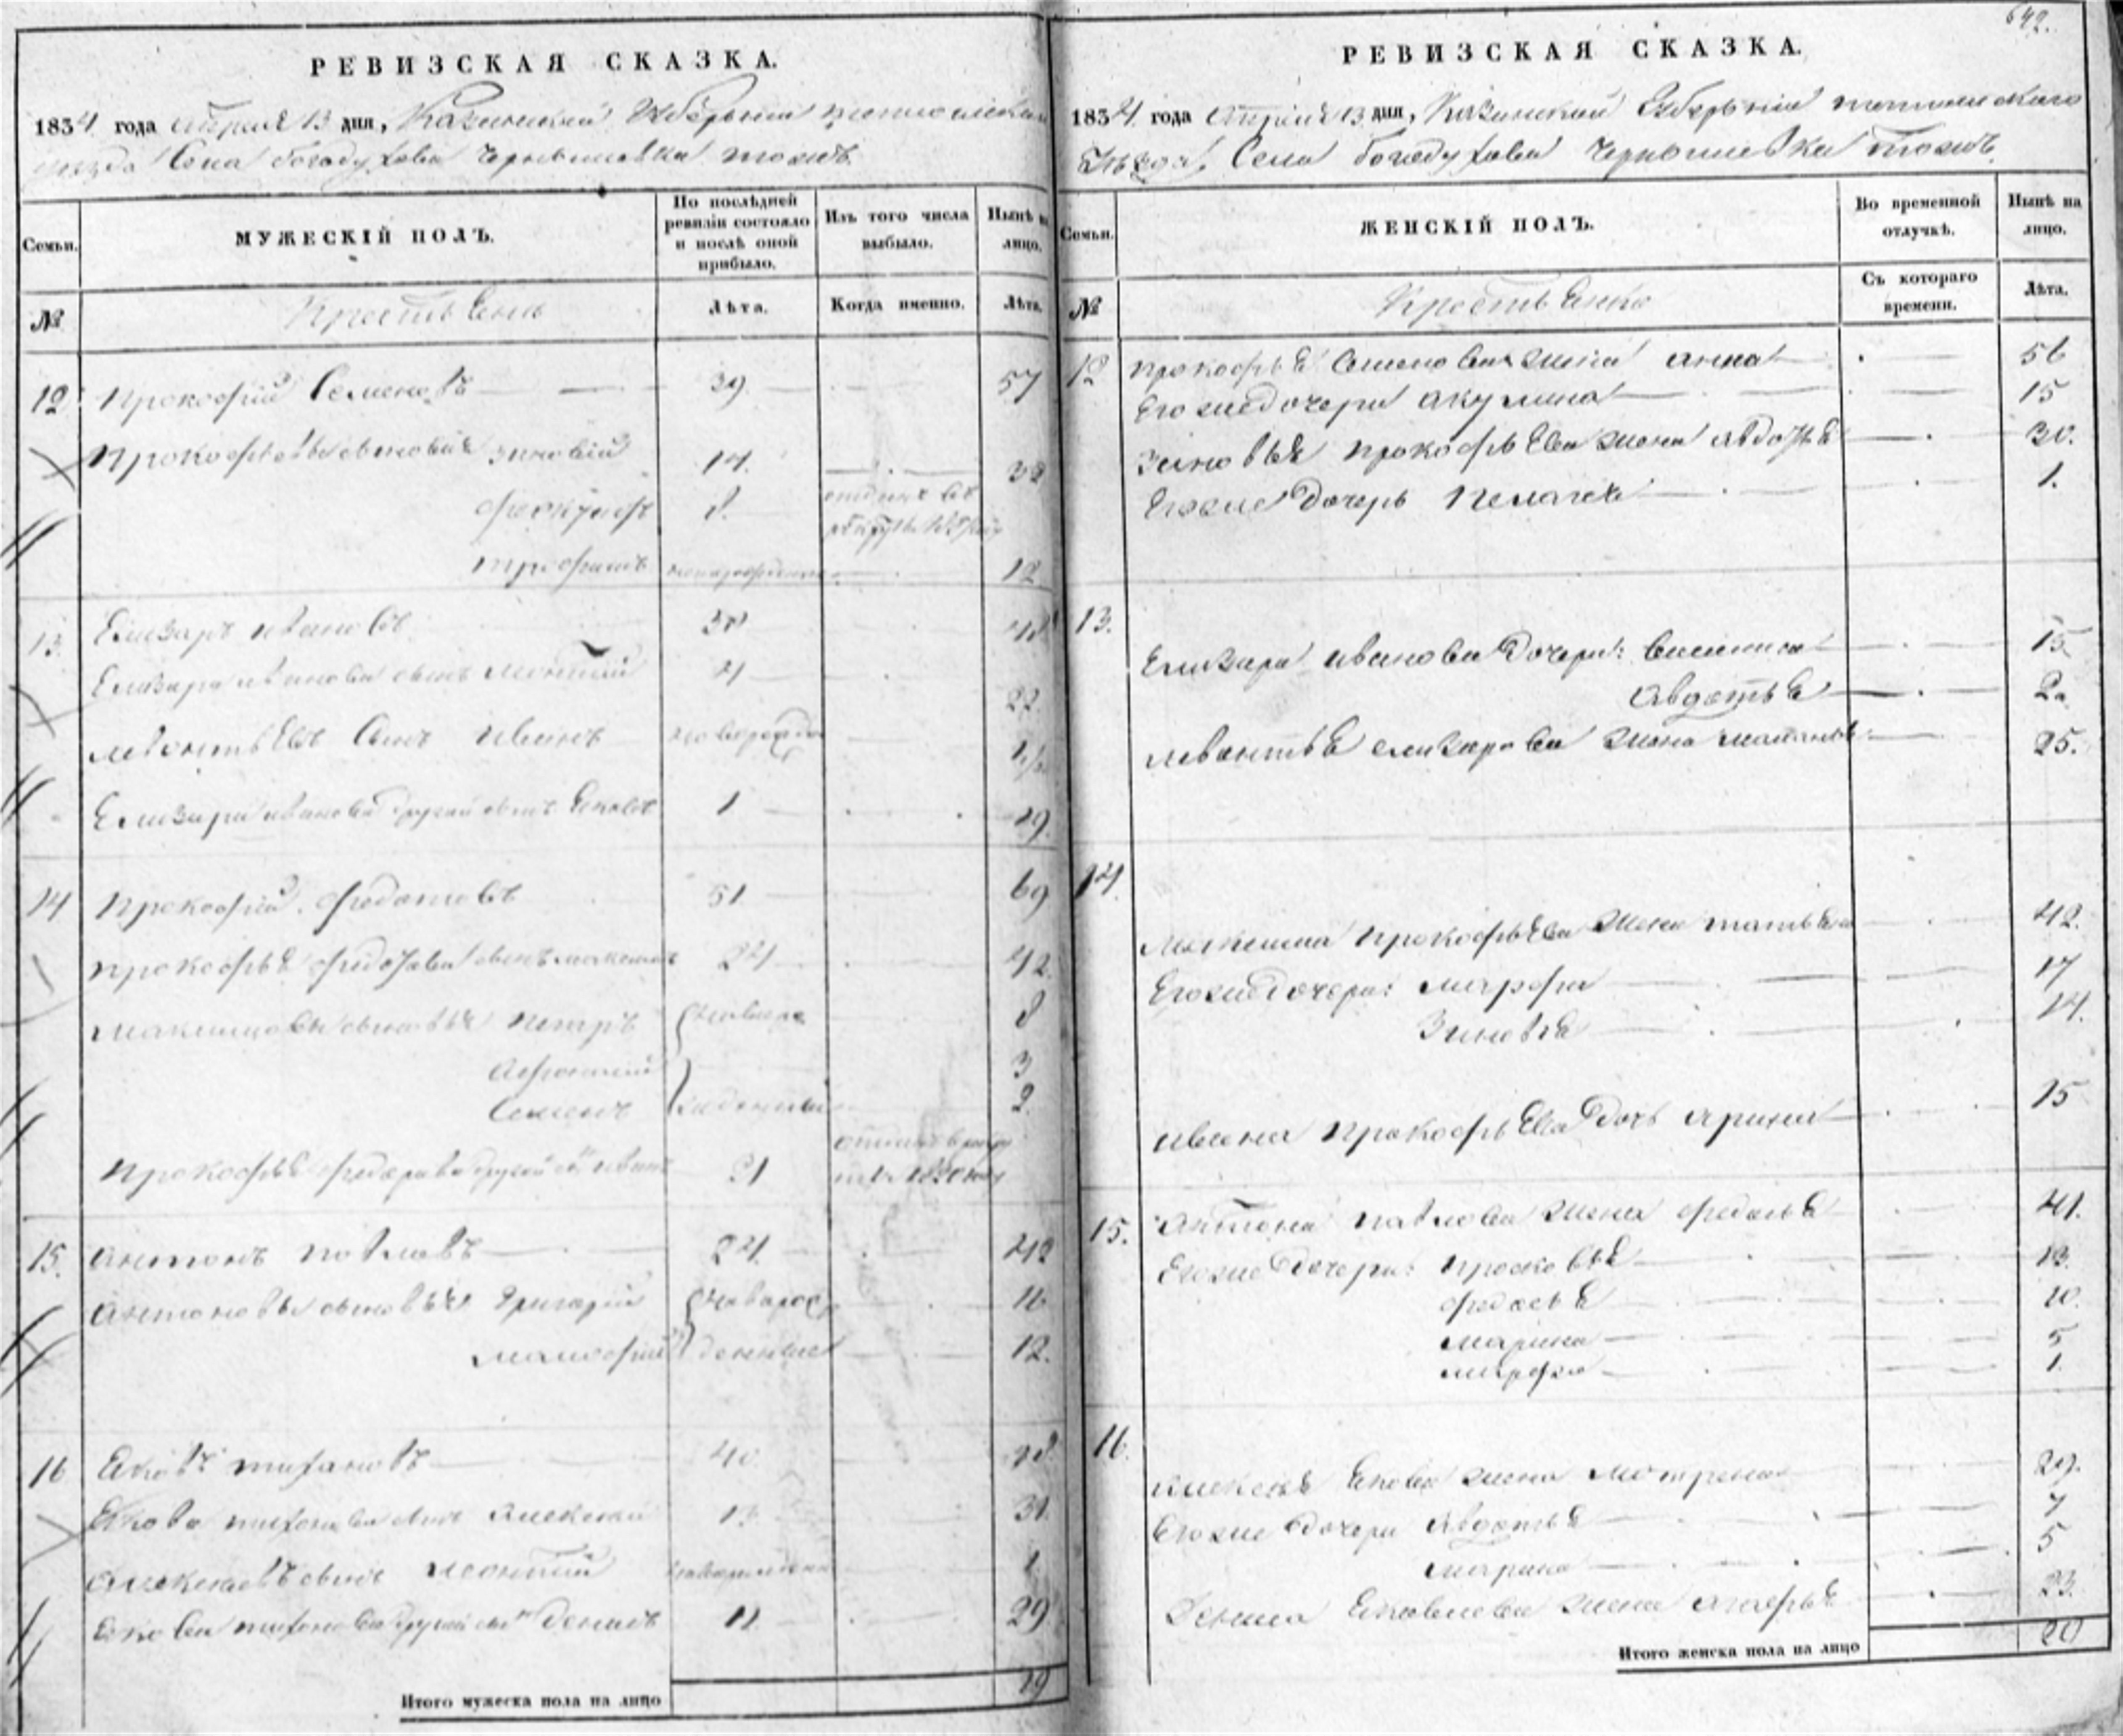 РЕВИЗСКАЯ СКАЗКА.
1834 года апреля 13 дня, Казанской Губернии
уезда Села Богодухова Чернышевка тожъ
Семьи.
МУЖЕСКІЙ ПОЛЪ.
По послѣдней ревизіи состояло и послѣ оной прибыло.
Изъ того числа выбыло.
Нынѣ на лицо.
№
Крестьяне
Лѣта.
Когда именно.
Лѣта.
12 Прокофій Семеновъ 39 57
Прокофьевы сыновья Зиновій 14. 32
8. отданъ въ рекруты
Трофимъ новорожденъ 12
13. Елизаръ Ивановъ 30 48
Елизара Иванова сынъ Леонтій 4 22
Левонтьевъ сынъ Иванъ новорожд 1/2
Елизара Иванова другой сынъ Ековъ 1 19.
14 Прокофій Федотовъ 51 69
Прокофья Федотова сынъ Максимъ 24 42
Максимовы сыновья Петръ новоро 8
3
Семенъ жденные 2.
Прокофья другой сынъ Иванъ 21 отданъ в рекру
15. Антонъ Павловъ 24. 42
Антоновы сыновья Григорій новорож 16
денные 12.
16 Яковъ Тихановъ 40 58
Якова Тиханова сынъ Алексей 13 31.
Алексеевъ сынъ Леонтій новорожденъ 1
Екова Тиханова другой сынъ Денисъ 11 29
Итого мужеска пола на лицо 19
642.
РЕВИЗСКАЯ СКАЗКА.
1834. года апреля 13 дня, Казанской Губерніи
Уезда, Села Богодухова Чернышевка тожъ
Семьи.
ЖЕНСКІЙ ПОЛЪ.
Во временной отлучкѣ.
Нынѣ на лицо.
№
Крестьянки
Съ котораго времени.
Лѣта.
12 Прокофья Семенова жена Анна 56
Его же дочери Акулина 15
Зиновья Прокофьева жена Авдотья 30.
Его же дочерь Пелагея 1.
13.
Елизара Иванова дочери: Василиса 15
Авдотья 20
Левонтья Елизарова жена 25.
14.
Максима Прокофьева жена Татьяна 42.
Его же дочери: Марфа 17
Зиновья 14.
Ивана Прокофьева дочь Арина 15
15. Антона Павлова жена Федосья 41.
Его же дочери: Просковья 13.
Федосья 10.
Марина 5
Марфа 1.
16.
Алексея Екова жена Мотрена 29.
Его же дочери Авдотья 7
Марина 5
Дениса Яковлева жена 23.
Итого женска пола на лицо 20